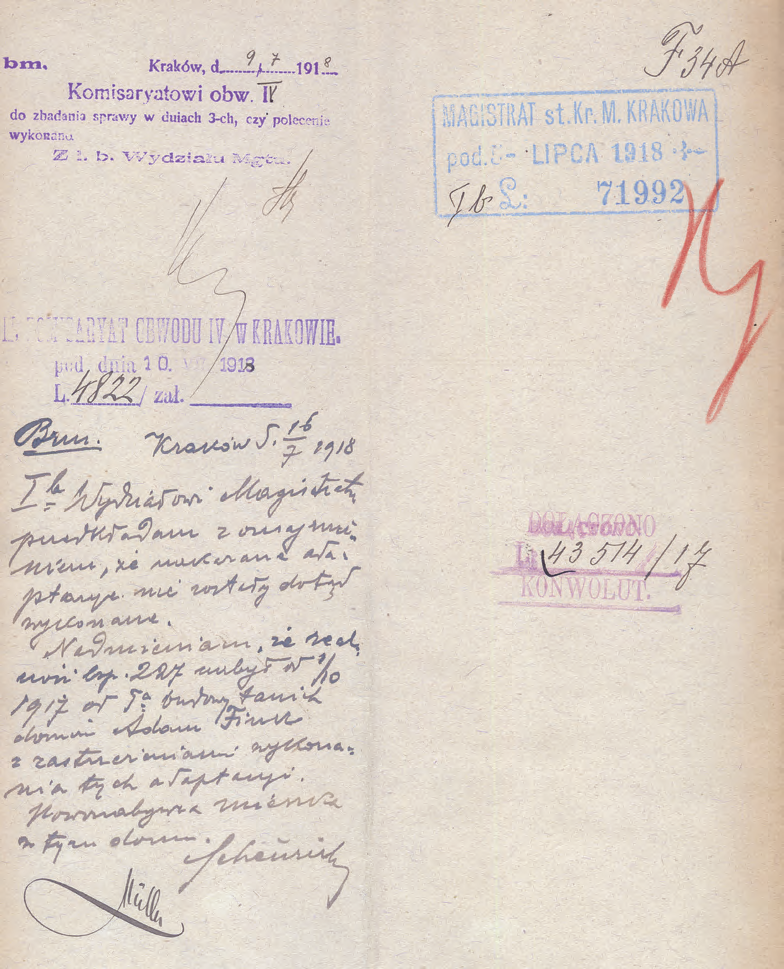 bm.
Kraków, d. 9/7 1918
Komisaryatowi obw. IV
do zbadania sprawy w dniach 3-ch, czy polecenie
wykonano.
Z l. b. Wydziału Mgtu.
F 34A
MAGISTRAT st. Kr. M. KRAKOWA
pod. 5- LIPCA 1918
I b L: 71992
KOMISARYAT OBWODU IV. w KRAKOWIE.
pod. dnia 10. VII 1918
L. 4822/ zał.
Brm. Kraków d. 16/7 1918
I b Wydziałowi Magistratu
przedkładam z oznajmie-
niem, że nakazane ada-
ptacye nie zostały dotąd
wykonane.
Nadmieniam, że real-
ność lsp. 227 nabył od 1/10
1917 od Tа budowy tanich
domów Adam Finkz
z zastrzeżeniami wykona-
nia tych adaptacyi.
Nowonabywca mieszka
w tym domu.
Müller
DOŁĄCZONO
L: 43514/17
KONWOLUT.